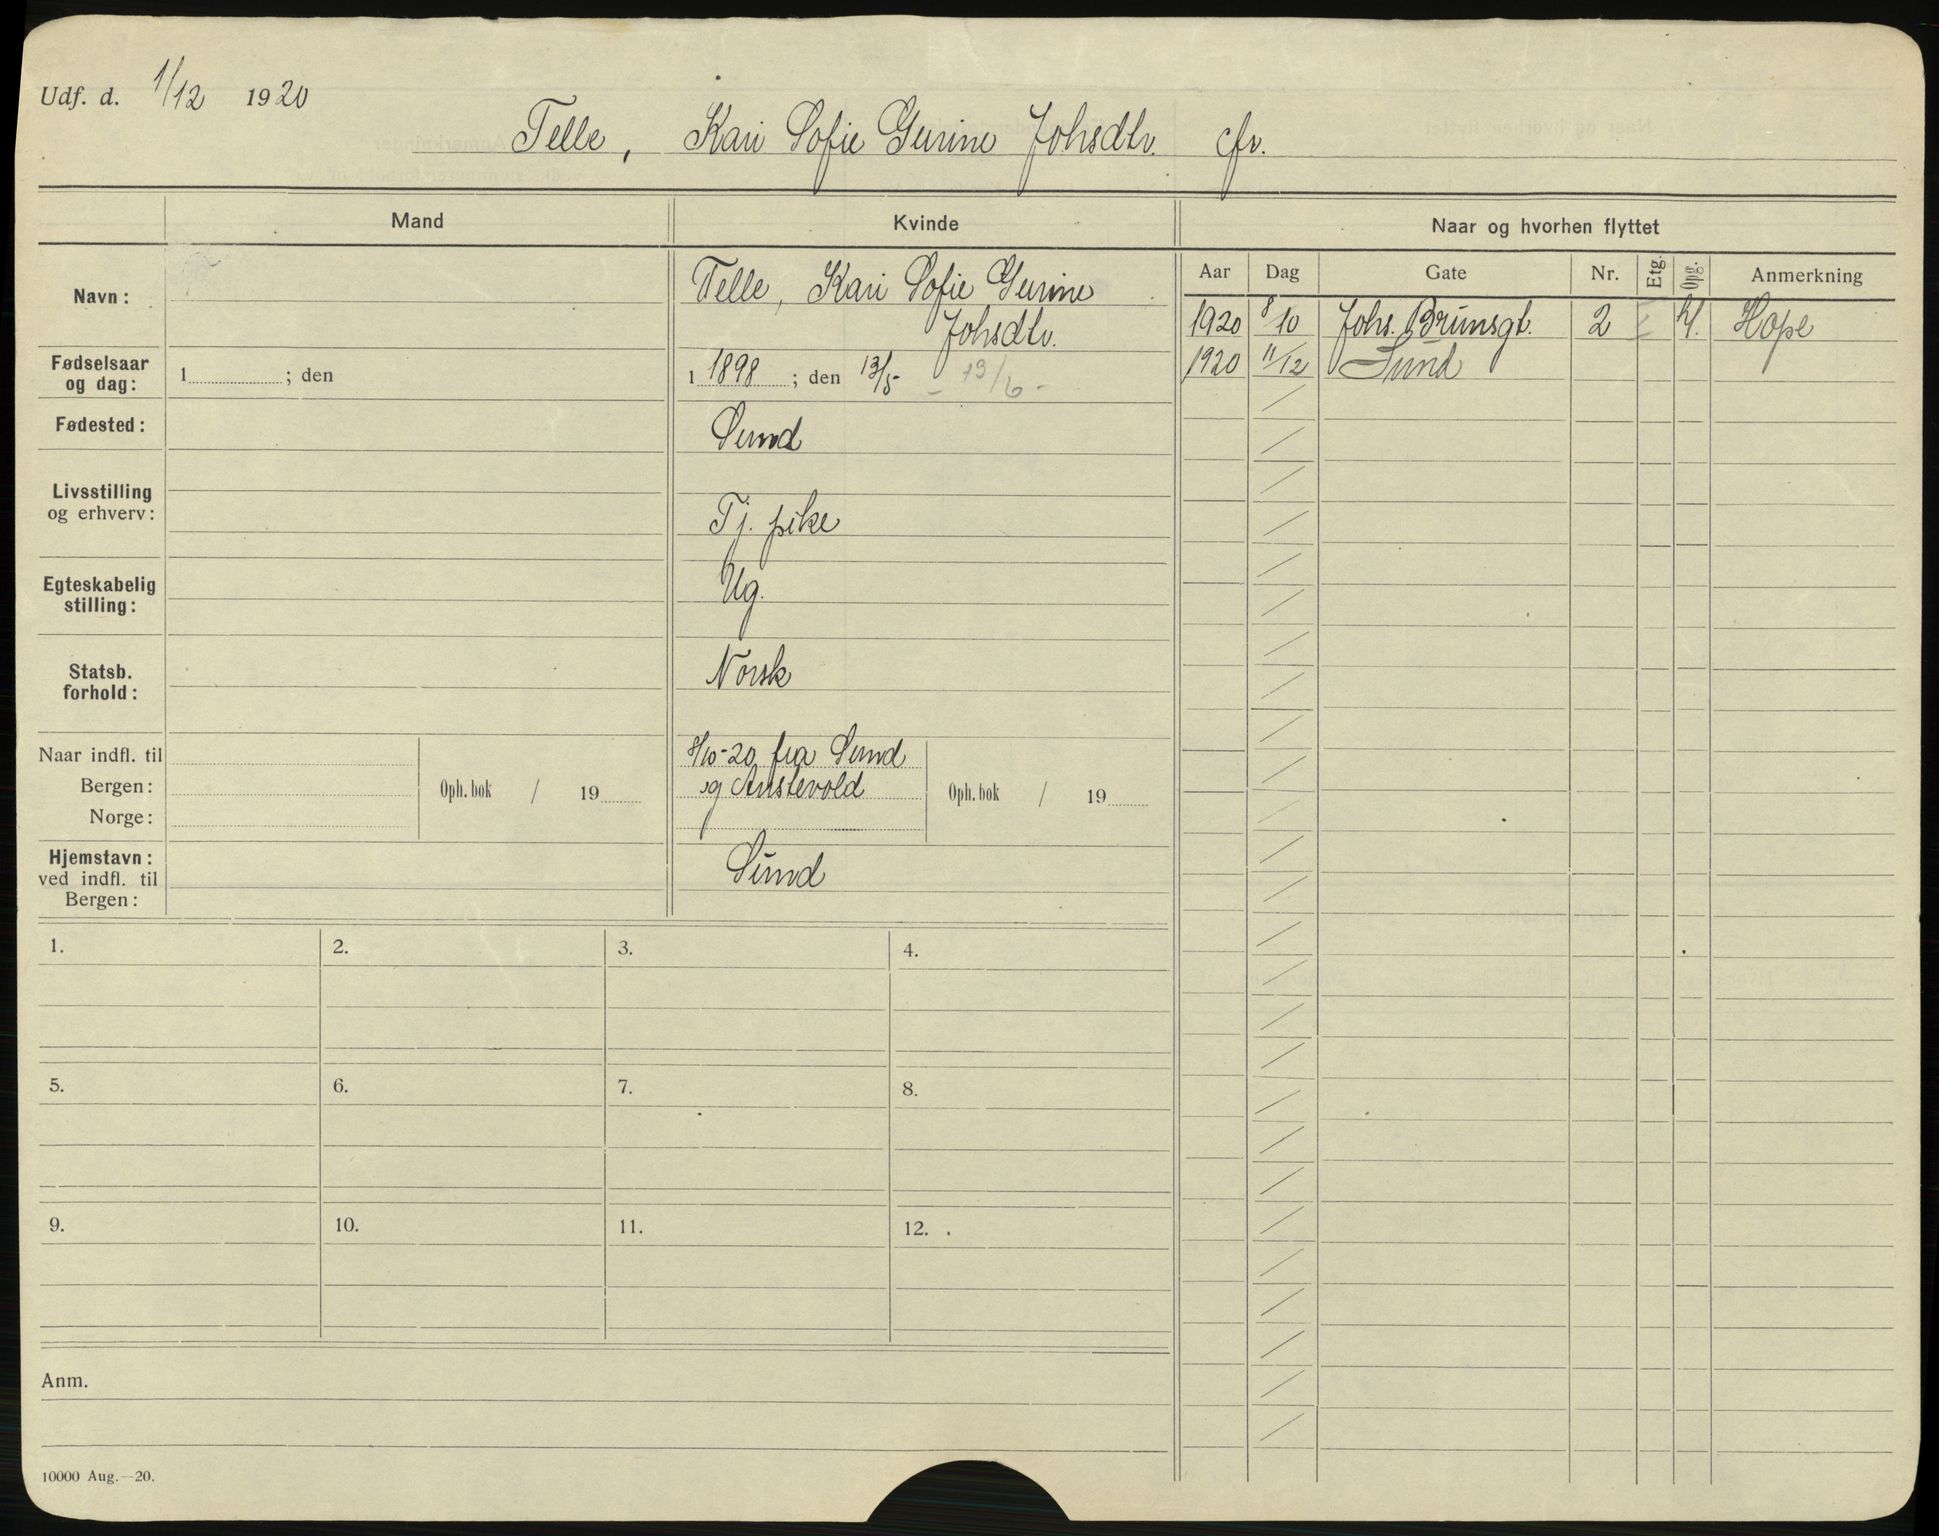 Udf. d. 1/12 1920
Telle, Kari Sofie Gurine Johsdtr. cfr.
Mand Kvinde Naar og hvorhen flyttet
Aar Dag Gate Nr. Etg. Opg. Anmerkning
Navn: Telle, Kari Sofie Gurine
Johsdtr.
1920 8/10 Johs. Brunsgt. 2 Hope
1920 11/12 Sund
Fødselsaar
og dag: 1 ; den 1 1898 ; den 13/5 - 13/6 -
Fødested: Sund
Livsstilling
og erhverv: Tj. pike
Egteskabelig
stilling: Ug.
Statsb.
forhold: Norsk
Naar indfl. til 8/10-20 fra Sund
Bergen: Oph. bok / 19 og Austevold Oph. bok / 19
Norge:
Hjemstavn:
ved indfl. til Sund
Bergen:
1. 2. 3. 4.
5. 6. 7. 8.
9. 10. 11. 12.
Anm.
10000 Aug.—20.